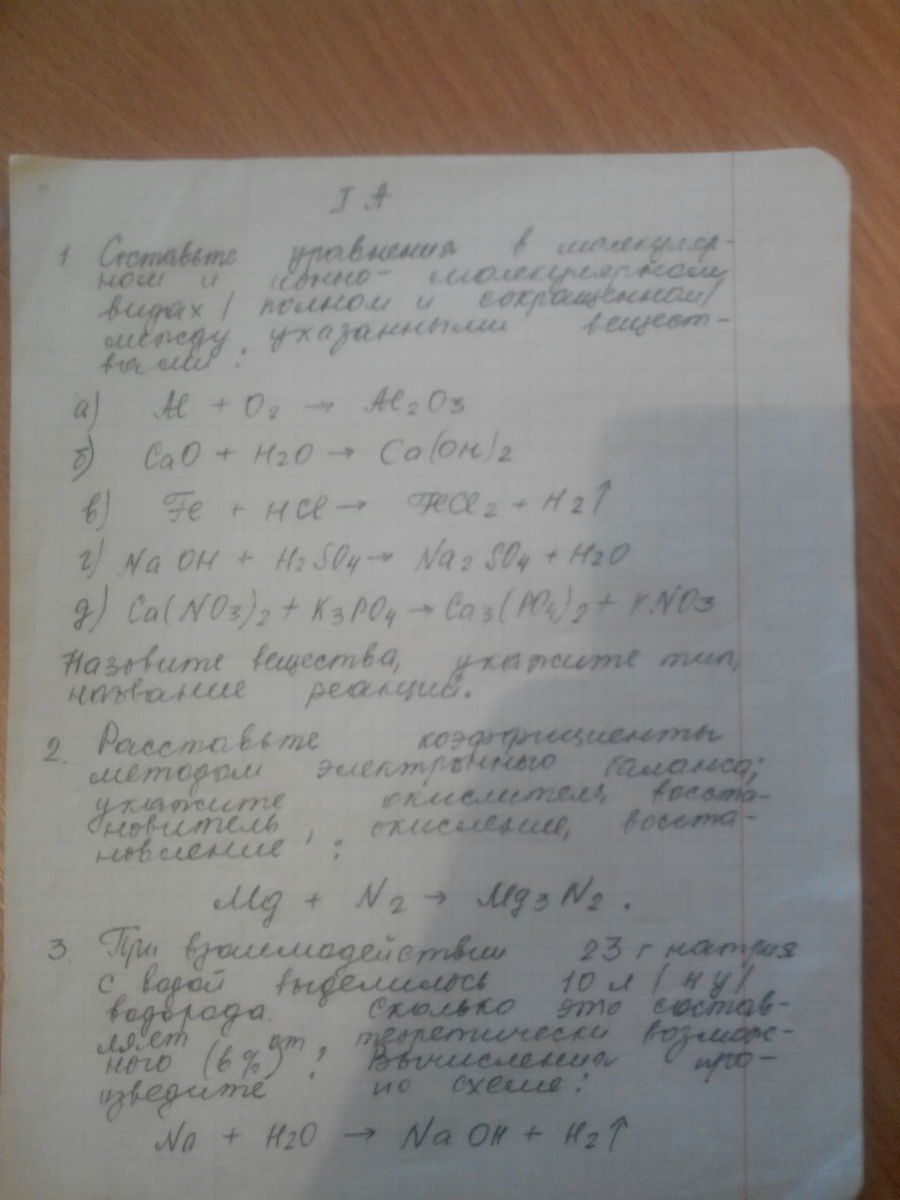 I A
1 Составьте уравнения в молекуляр-
ном и ионно- молекулярном
видах / полном и сокращенном/
между указанными вещест-
вами :
а) Al + O2 → Al2O3
б) CaO + H2O → Ca(OH)2
в) Fe + HCl → FeCl2 + H2↑
г) NaOH + H2SO4 → Na2SO4 + H2O
д) Ca(NO3)2 + K3PO4 → Ca3(PO4)2 + KNO3
Назовите вещества, укажите тип,
название реакции.
2. Расставьте коэффициенты
методом электронного баланса;
укажите окислитель, восста-
новитель, окисление, восста-
новление :
Mg + N2 → Mg3N2.
3. При взаимодействии 23 г натрия
с водой выделилось 10 л / н у /
водорода. Сколько это состав-
ляет от теоретически возмож-
ного (в %)? Вычисления про-
изведите по схеме:
Na + H2O → NaOH + H2↑